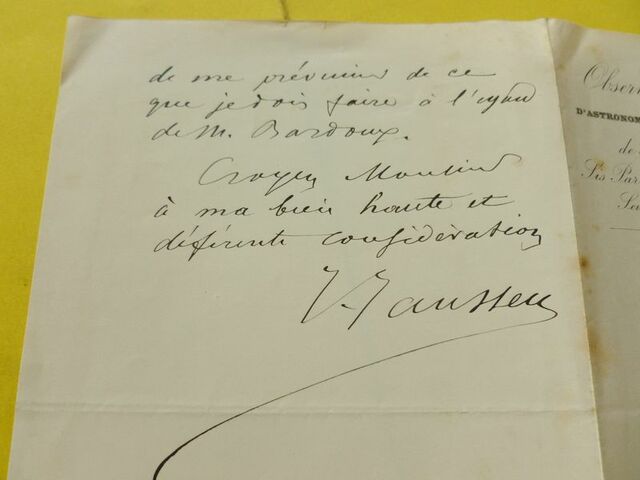 de me prévenir de ce
que je dois faire à l'égard
de M. Bardoux.
Croyez Monsieur
à ma bien haute et
déférente considération
J. Janssen
Observ
D'ASTRONOM
de
Sis Par